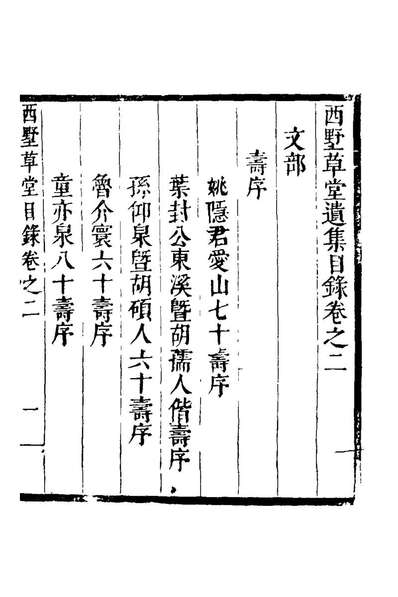 西墅草堂遺集目錄卷之二
文部
壽序
姚隱君愛山七十壽序
葉封公東溪暨胡孺人偕壽序
孫仰泉暨胡碩人六十壽序
魯介寰六十壽序
童亦泉八十壽序
西墅草堂目錄卷之二 一